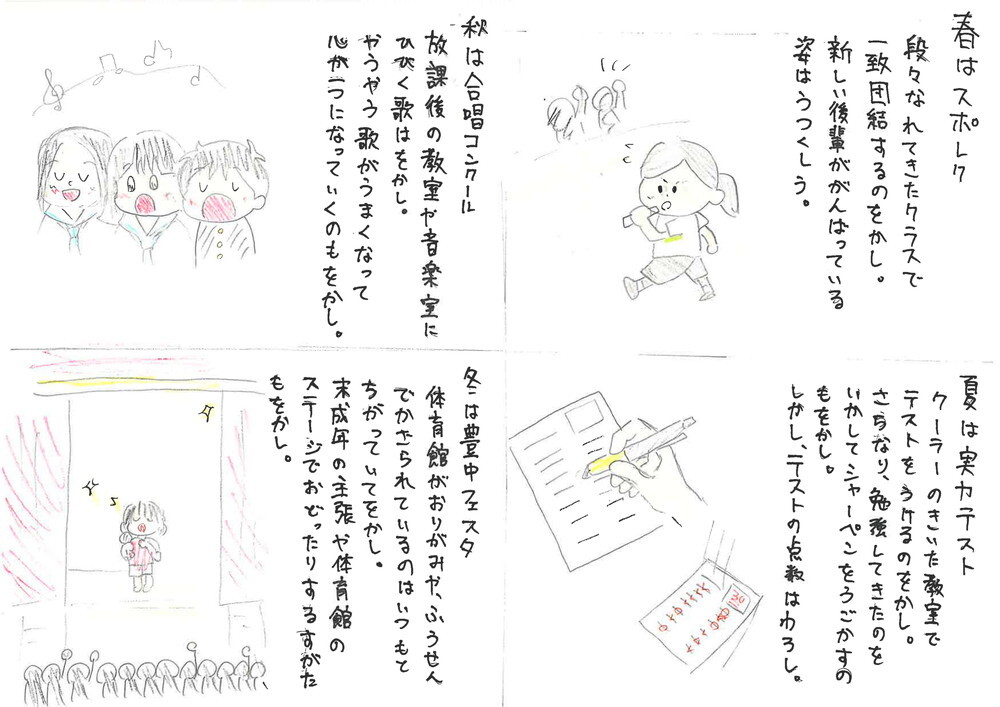 春はスポレク
段々なれてきたクラスで
一致団結するのをかし。
新しい後輩ががんばっている
姿はうつくしう。
夏は実力テスト
クーラーのきいた教室で
テストをうけるのをかし。
さらなり、勉強してきたのを
いかしてシャーペンをうごかすの
もをかし。
しかし、テストの点数はわろし。
秋は合唱コンクール
放課後の教室や音楽室に
ひびく歌はをかし。
やうやう歌がうまくなって
心が一つになっていくのもをかし。
冬は豊中フェスタ
体育館がおりがみや、ふうせん
でかざられているのはいつもと
ちがっていてをかし。
未成年の主張や体育館の
ステージでおどったりするすがた
もをかし。